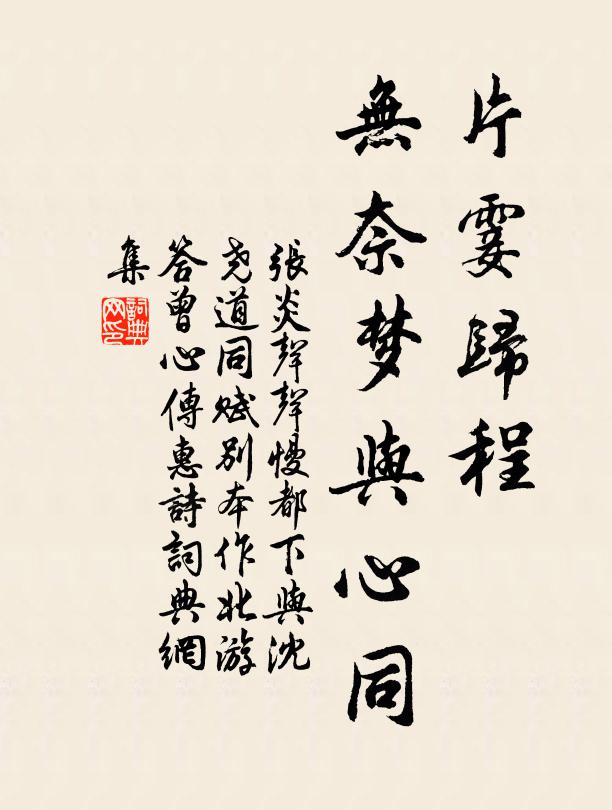 片霎歸程
無奈梦與心同
張炎聲聲慢都下與沈
尧道同賦别本作北游
答曾心傳惠詩詞典網
集
詞典
网印